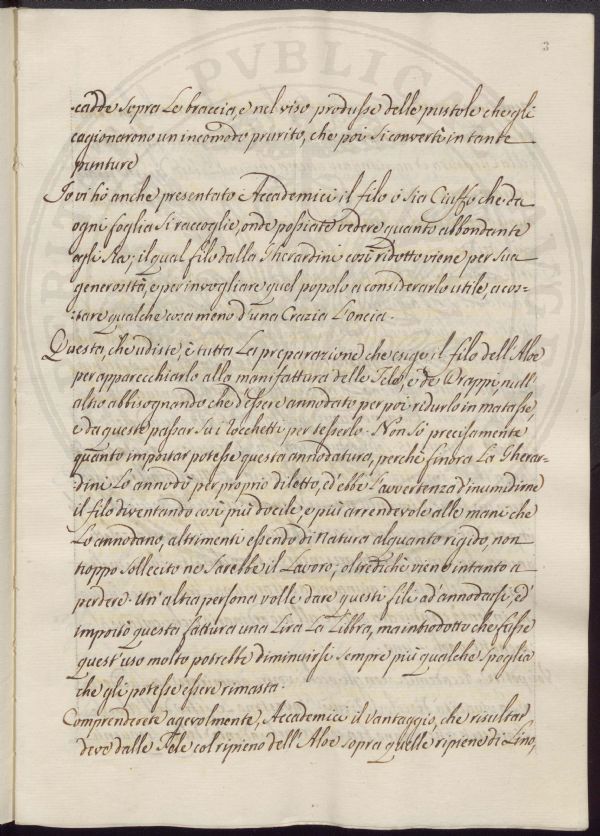 3
cadde sopra le braccia, e nel viso produsse delle pustole che gli
cagionarono un incomodo prurito, che poi si convertì in tante
punture
Io vi hò anche presentato Accademici il filo o sia Ciuffo che da
ogni foglia si raccoglie, onde possiate vedere quanto abbondante
egli sia; il qual filo dalla Gherardini così ridotto viene per sua
generosità, e per invogliare quel popolo a considerarlo utile, a cos-
:tare qualche cosa meno d'una Crazia l'oncia.
Questa, che udiste, è tutta la preparazione che esige il filo dell'Aloe
per apparecchiarlo alla manifattura delle Tele, e de Drappi, null'
altro abbisognando che d'essere annodato per poi ridurlo in matasse,
e da queste passar su i rocchetti per tesserlo. Non sò precisamente
quanto importar potesse questa annodatura, perchè finora la Gherar=
dini lo annodò per proprio diletto, ed ebbe l'avvertenza d'inumidirne
il filo diventando così più docile, e più arrendevole alle mani che
lo annodano, altrimenti essendo di natura alquanto rigido, non
troppo sollecito ne sarebbe il lavoro; oltredichè viene intanto a
perdere. Un'altra persona volle dare questi fili ad annodarsi, ed
importò questa fattura una Lira la Libbra, ma introdotto che fosse
quest'uso molto potrebbe diminuirsi sempre più qualche spoglia
che gli potesse essere rimasta.
Comprenderete agevolmente, Accademici il vantaggio, che risultar
deve dalle Tele col ripieno dell'Aloe sopra quelle ripiene di Lino,
PVBLICA